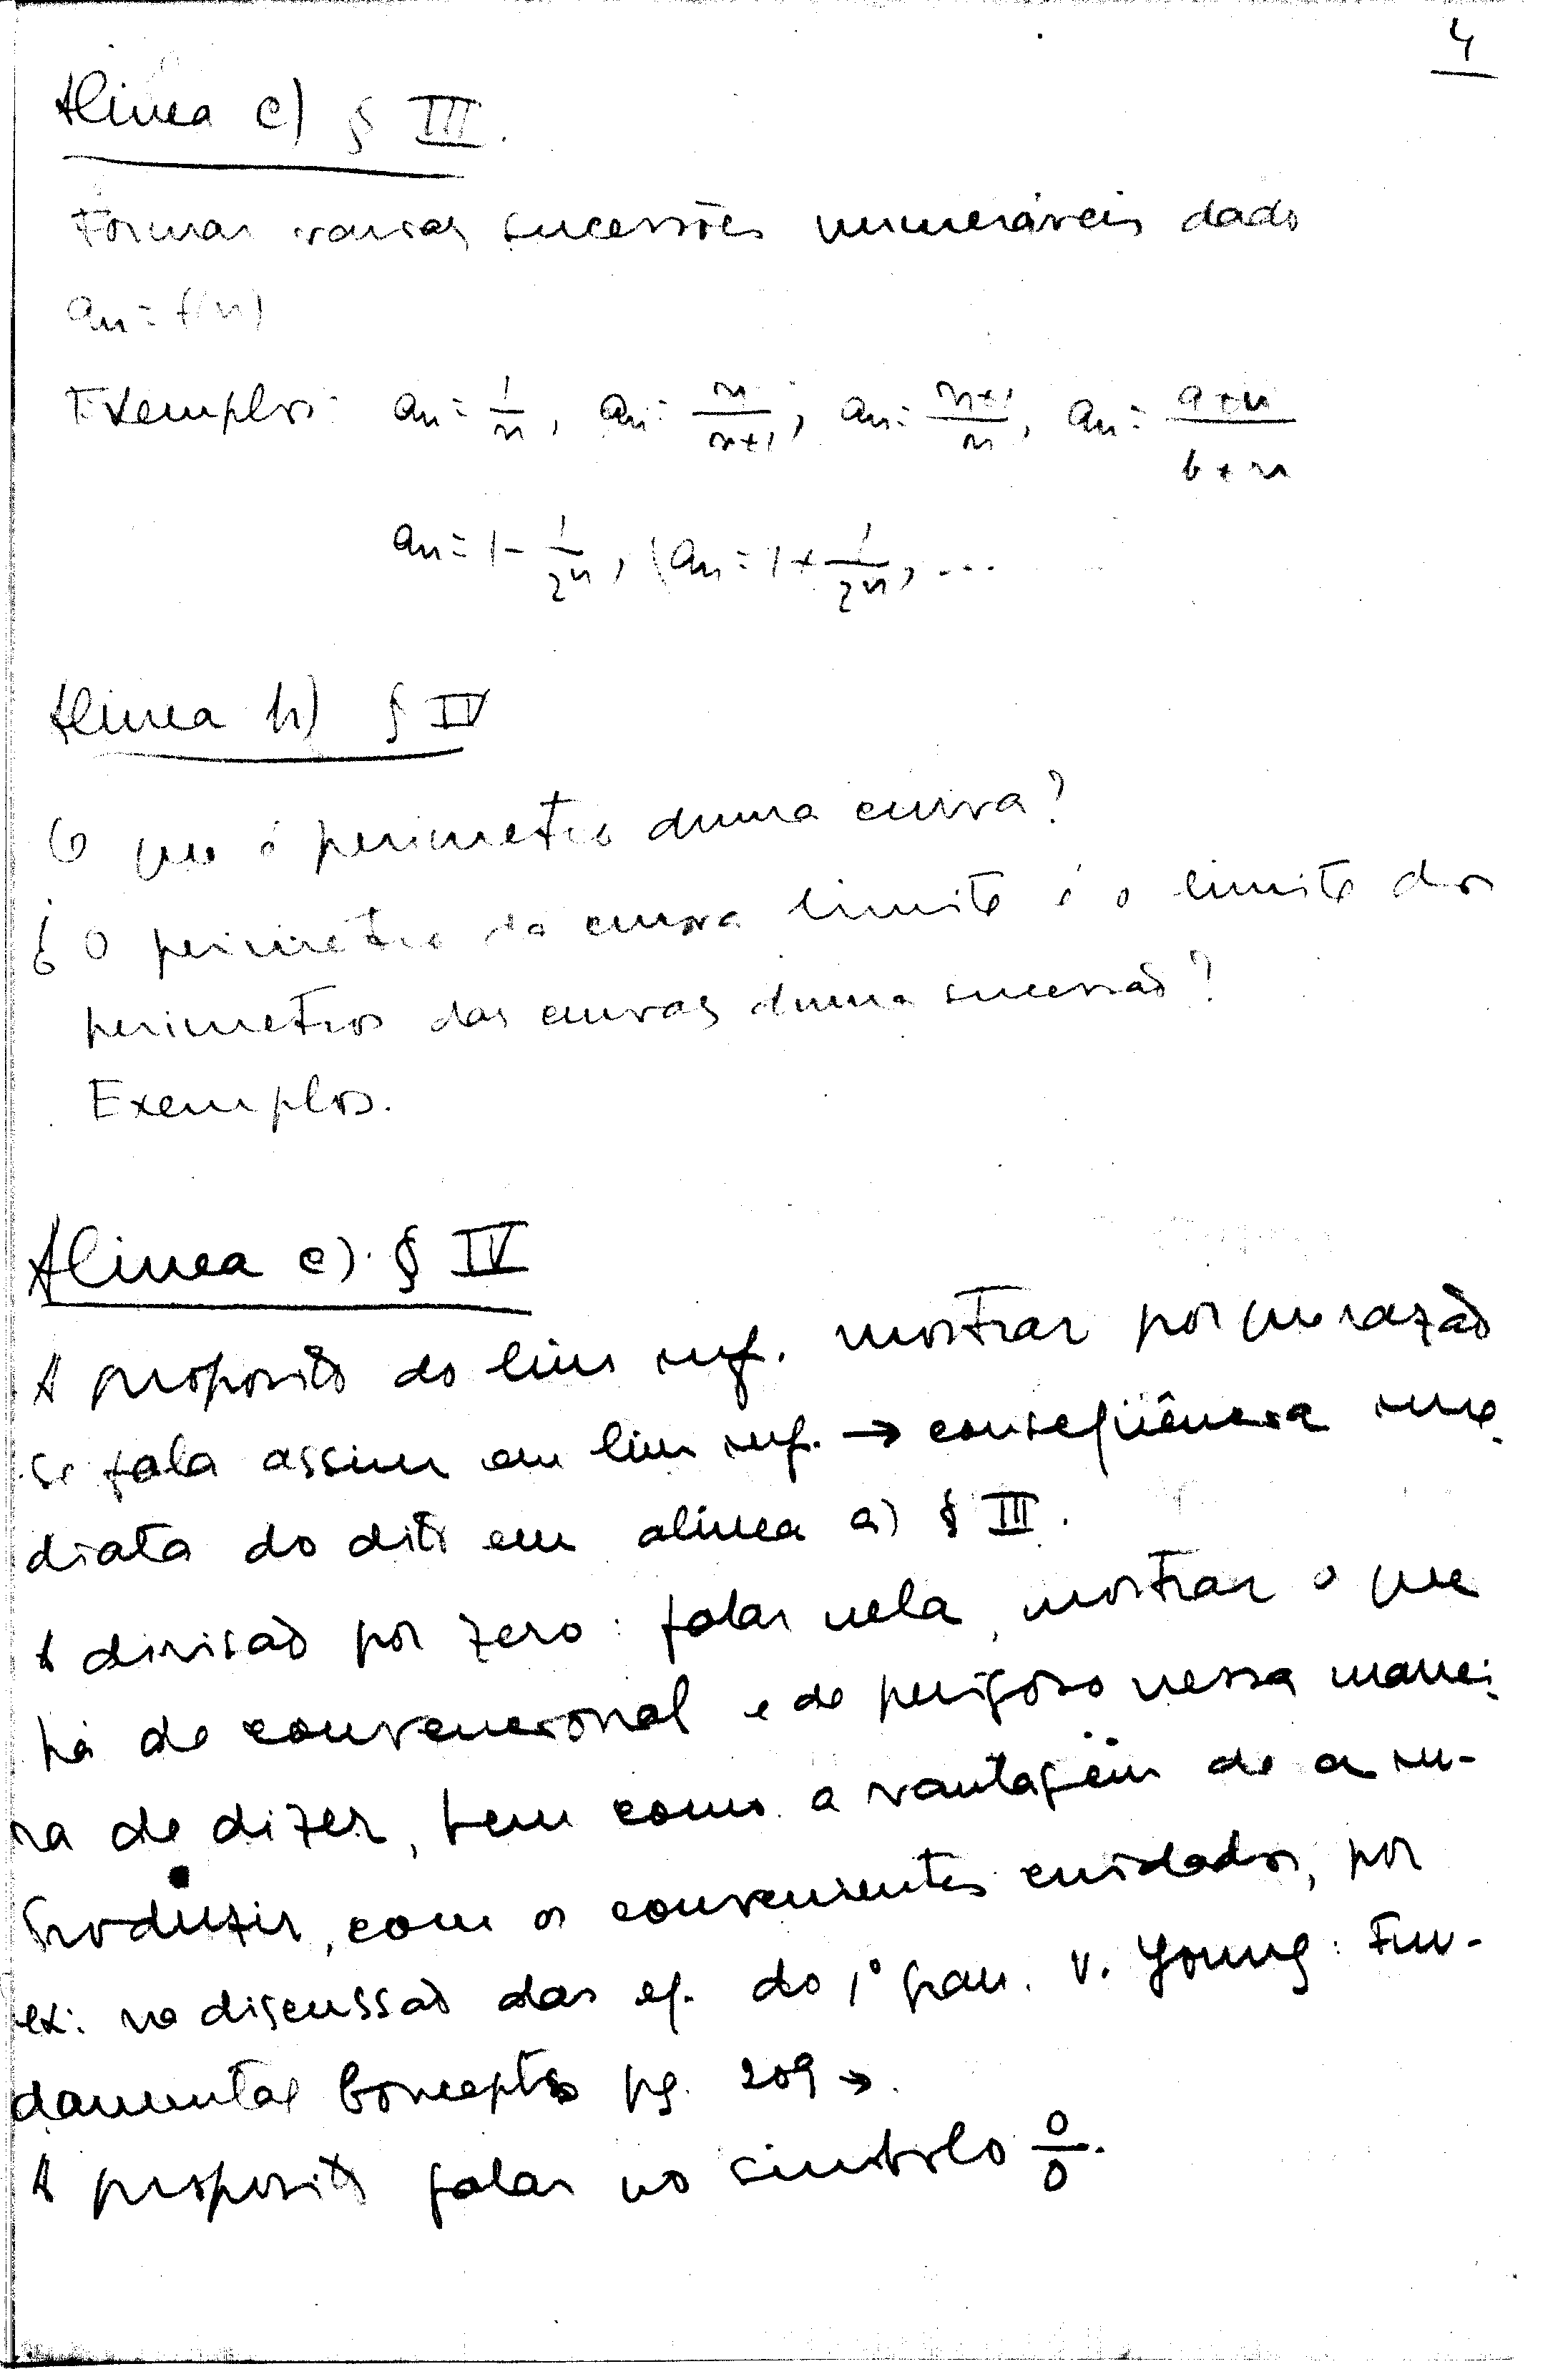 4
Alinea c) § III.
Formar varias sucessões numeráveis dado
an = f(n)
Exemplos: an = 1/n, an = n/n+1, an = n+1/n, an = a+n/b+n
an = 1 - 1/2n, (an = 1 + 1/2n, ...
Alinea b) § IV
O que é perimetro duma curva?
¿ O perimetro da curva limite é o limite dos
perimetros das curvas duma sucessão?
Exemplos.
Alinea c) § IV
A proposito do lim inf. mostrar por que razão
se fala assim em lim inf. → conseqüência ime
diata do dito em alinea a) § III.
A divisão por zero: falar nela, mostrar o que
há de convencional e de perigoso nessa manei
ra de dizer, bem como a vantagem de a in-
troduzir, com os convenientes cuidados, por
ex: na discussão das eq. do 1º grau. V. Young: Fun-
damental Concepts pg. 209 →.
A proposito falar no simbolo 0/0.